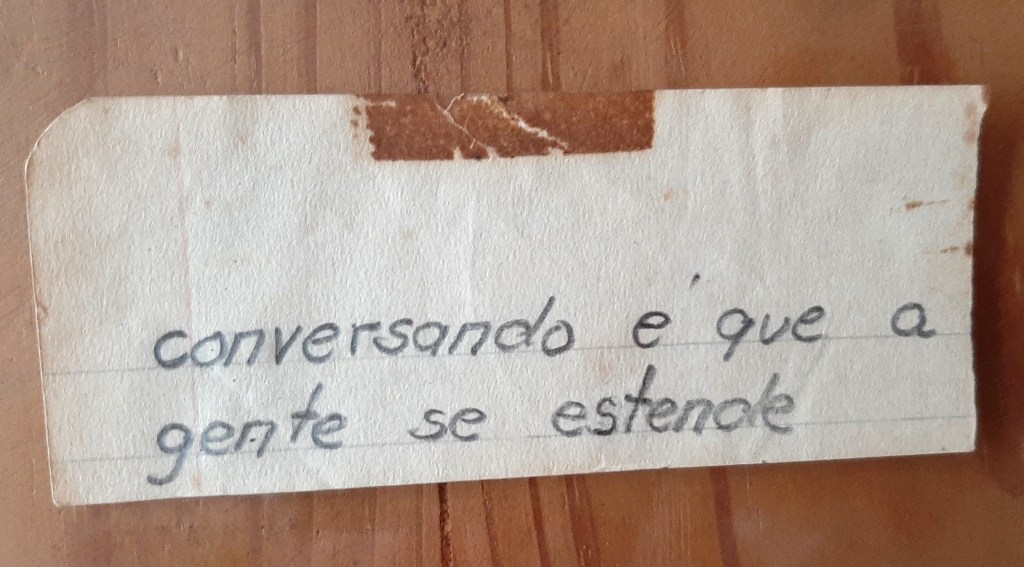 conversando é que a
gente se estende